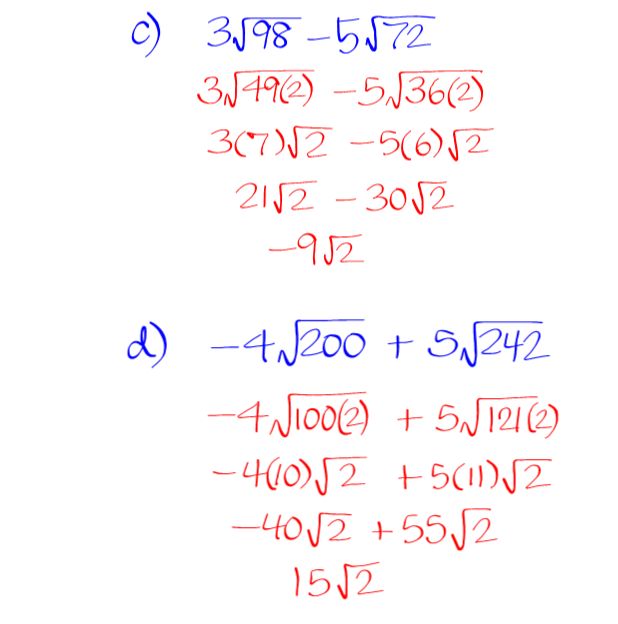 c) 3√98 - 5√72
3√49(2) - 5√36(2)
3(7)√2 - 5(6)√2
21√2 - 30√2
-9√2
d) -4√200 + 5√242
-4√100(2) + 5√121(2)
-4(10)√2 + 5(11)√2
-40√2 + 55√2
15√2